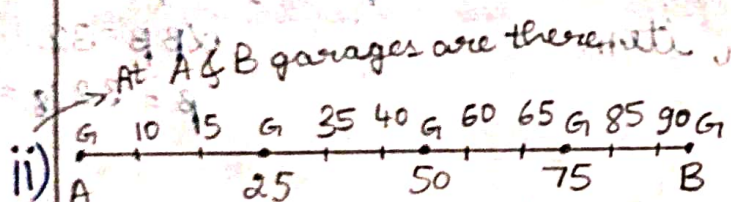 At A & B garages are there
G 10 15 G 35 40 G 60 65 G 85 90 G
ii) A 25 50 75 B